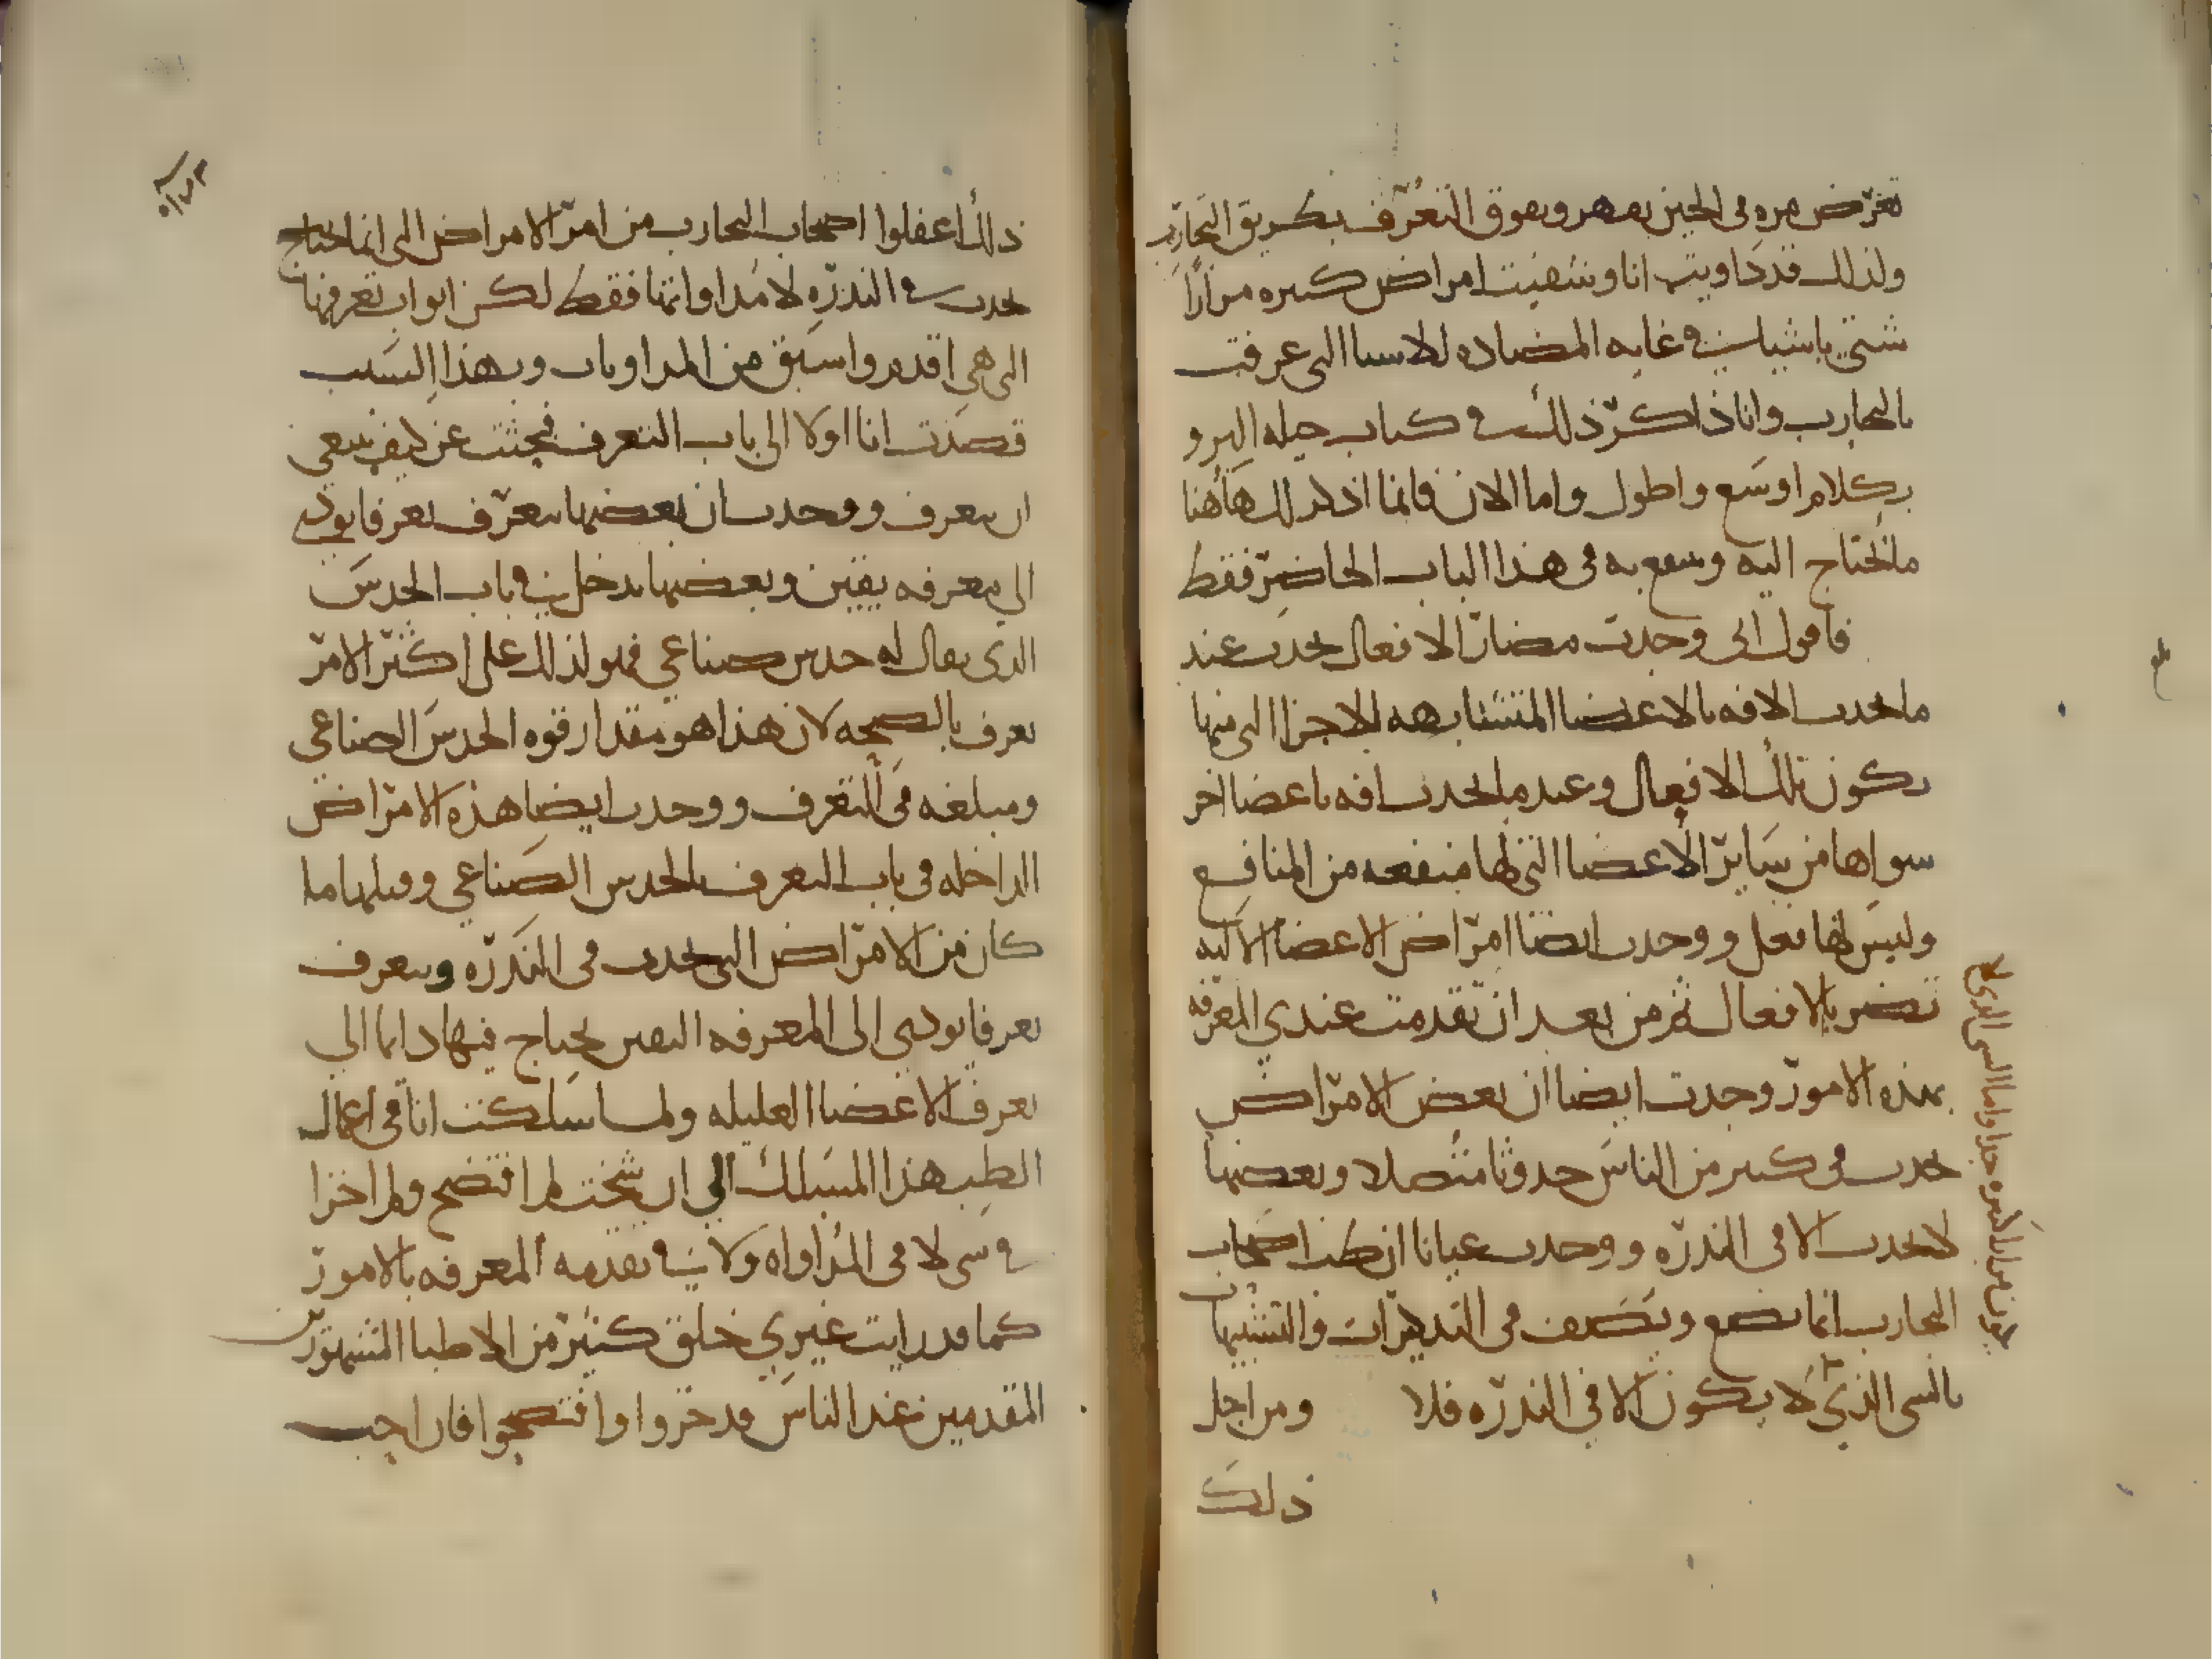 تعرض مره في الحين يقهر ويفوق التعرف بطريق التجارب
ولذلك قد داويت انا وشفيت امراض كثيره مرارا
شتى باشيا في غايه المضاده للاسيا التي عرفت
بالتجارب وانا ذاكر ذلك في كتاب حيله البرو
بكلام اوسع واطول واما الان فانما اذكر لك هاهنا
ما يحتاج اليه وينتفع به في هذا الباب الحاضر فقط
فاقول اني وجدت مضار الافعال تحدث عند
ما تحدث الافه بالاعضا المتشابهه الاجزا التي منها
يكون تلك الافعال وعند ما يحدث افه باعضا اخر
سواها من ساير الاعضا التي لها منفعه من المنافع
وليس لها فعل ووجدت ايضا امراض الاعضا الاليه
تضر بالافعال ثم من بعد ان تقدمت عندي المعرفه
بهذه الامور وجدت ايضا ان بعض الامراض
يحدث في كثير من الناس حدوثا متصلا وبعضها
لا يحدث الا في الندره ووجدت عيانا ان اصحاب
التجارب انما تضع وتصف في التذكيرات والتشبيهات
بالشي الذي لا يكون الا في الندره فلا ومن اجل
ذلك
يكون مرارا كثيره جدا واما الشي الذي لا
ذلك اغفلوا اصحاب التجارب من امر الامراض التي انما تحتاج
تحدث في الندره لا مداواتها فقط لكن ابواب تعرفها
التي هي اقدم واسبق من المداويات وبهذا السبب
قصدت انا اولا الى باب التعرف فبحثت عن كيف ينبغي
ان يتعرف ووجدت ان بعضها يتعرف تعرفا يودي
الى معرفه يقين وبعضها يدخل في باب الحدس
الذي يقال له حدس صناعي فهو لذلك على اكثر الامر
يعرف بالصحه لان هذا هو مقدار قوه الحدس الصناعي
ومبلغه في التعرف ووجدت ايضا هذه الامراض
الداخله في باب التعرف بالحدس الصناعي وقبلها ما
كان من الامراض التي تحدث في الندره ويتعرف
تعرفا يودي الى المعرفه اليقين يحتاج فيها دايما الى
تعرف الاعضا العليله ولما سلكت انا في اعمال
الطب هذا المسلك الى ان شخت لم افتضح ولم اخزا
في شي لا في المداواه ولا في تقدمه المعرفه بالامور
كما قد رايت غيري خلق كثير من الاطبا المشهورين
المقدمين عند الناس قد خزوا وافتضحوا فان احب